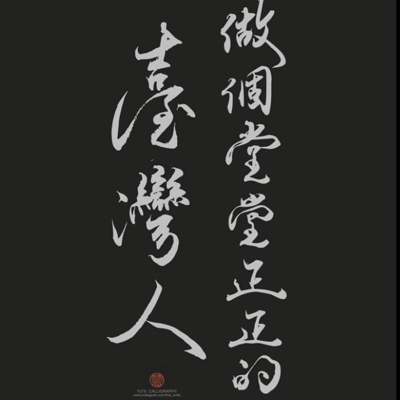 做個堂堂正正的
臺灣人
YU'S CALLIGRAPHY